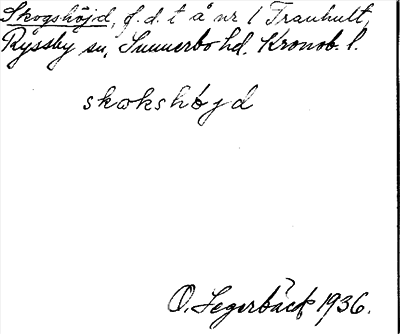 Skogshöjd, f.d. t å nr 1 Tranhult,
Ryssby sn, Sunnerbo hd. Kronob. l.
skokshöjd
O. Segerbäck 1936.